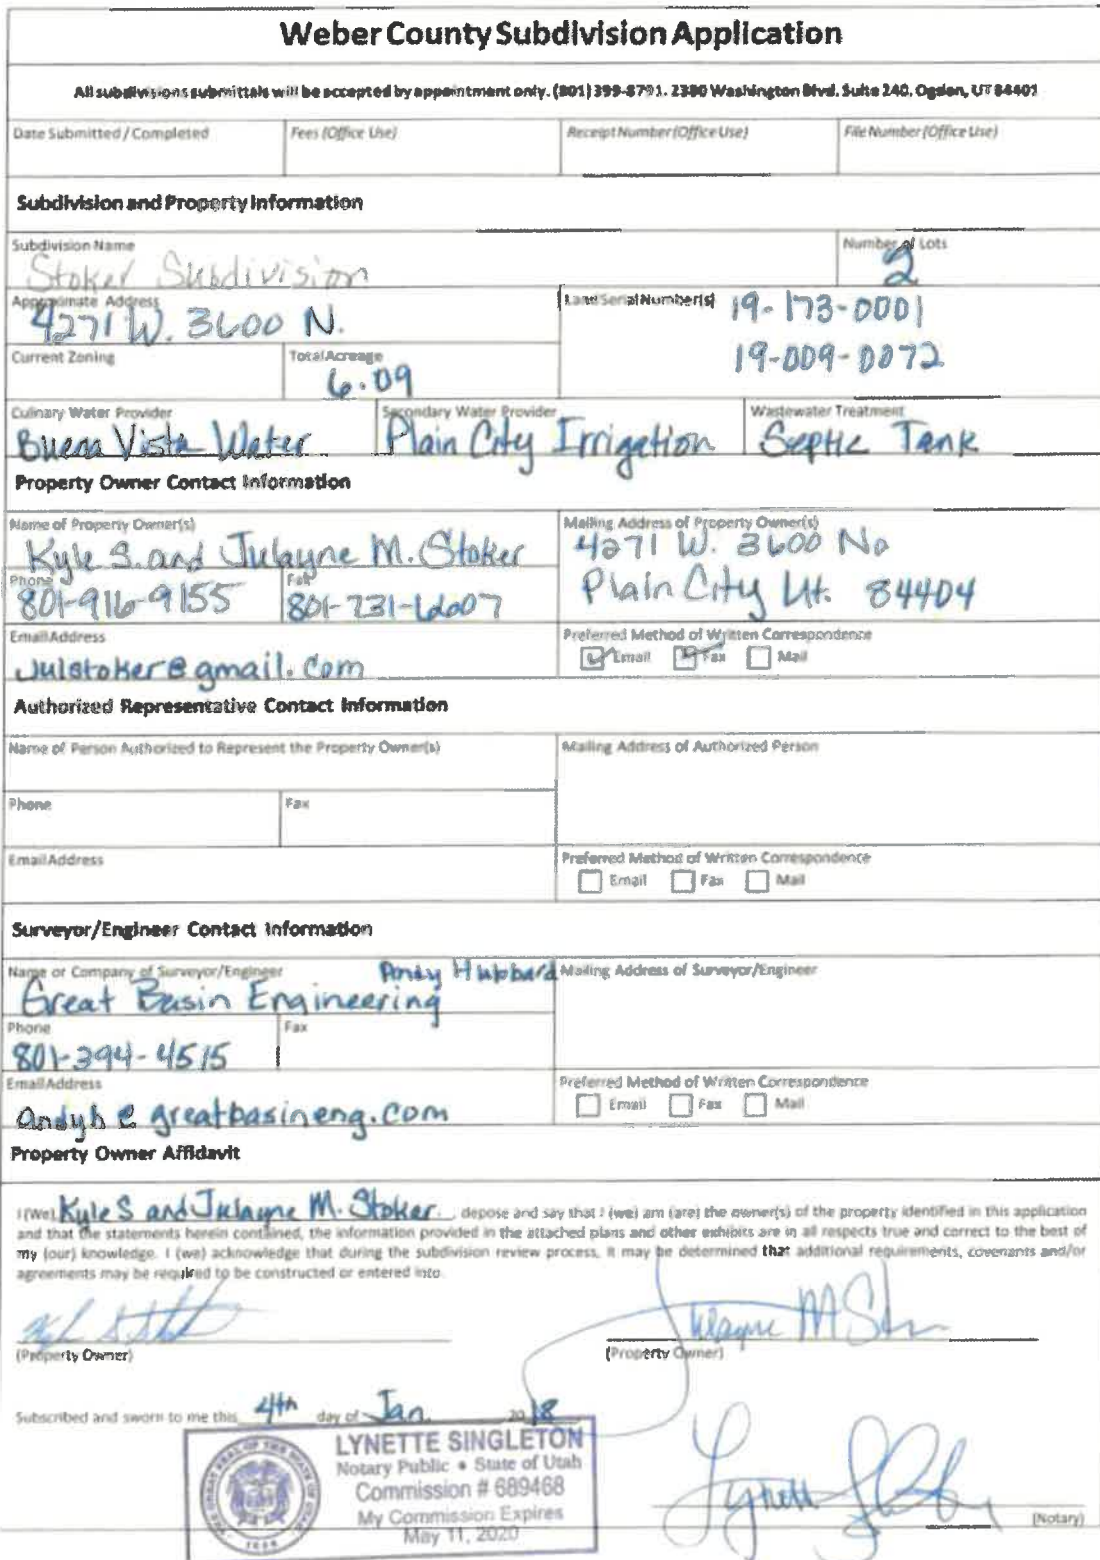 Weber County Subdivision Application
All subdivisions submittals will be accepted by appointment only. (801) 399-8791. 2380 Washington Blvd. Suite 240, Ogden, UT 84401
Date Submitted / Completed Fees (Office Use) Receipt Number (Office Use) File Number (Office Use)
Subdivision and Property Information
Subdivision Name Number of Lots
Stoker Subdivision 2
Approximate Address Land Serial Number(s) 19-173-0001
4271 W. 3600 N.
19-009-0072
Current Zoning Total Acreage
6.09
Culinary Water Provider Secondary Water Provider Wastewater Treatment
Buena Vista Water Plain City Irrigation Septic Tank
Property Owner Contact Information
Name of Property Owner(s) Mailing Address of Property Owner(s)
Kyle S. and Julayne M. Stoker 4271 W. 3600 No
Phone Fax Plain City Ut. 84404
801-916-9155 801-731-6607
Email Address Preferred Method of Written Correspondence
Julstoker@gmail.com Email Fax Mail
Authorized Representative Contact Information
Name of Person Authorized to Represent the Property Owner(s) Mailing Address of Authorized Person
Phone Fax
Email Address Preferred Method of Written Correspondence
Email Fax Mail
Surveyor/Engineer Contact Information
Name or Company of Surveyor/Engineer Andy Hubbard Mailing Address of Surveyor/Engineer
Great Basin Engineering
Phone Fax
801-394-4515
Email Address Preferred Method of Written Correspondence
andyh@greatbasineng.com Email Fax Mail
Property Owner Affidavit
I (We), Kyle S and Julayne M. Stoker, depose and say that I (we) am (are) the owner(s) of the property identified in this application
and that the statements herein contained, the information provided in the attached plans and other exhibits are in all respects true and correct to the best of
my (our) knowledge. I (we) acknowledge that during the subdivision review process, it may be determined that additional requirements, covenants and/or
agreements may be required to be constructed or entered into.
(Property Owner) (Property Owner)
Subscribed and sworn to me this 4th day of Jan. 20 18
LYNETTE SINGLETON
Notary Public • State of Utah
Commission # 689468
My Commission Expires
May 11, 2020
(Notary)